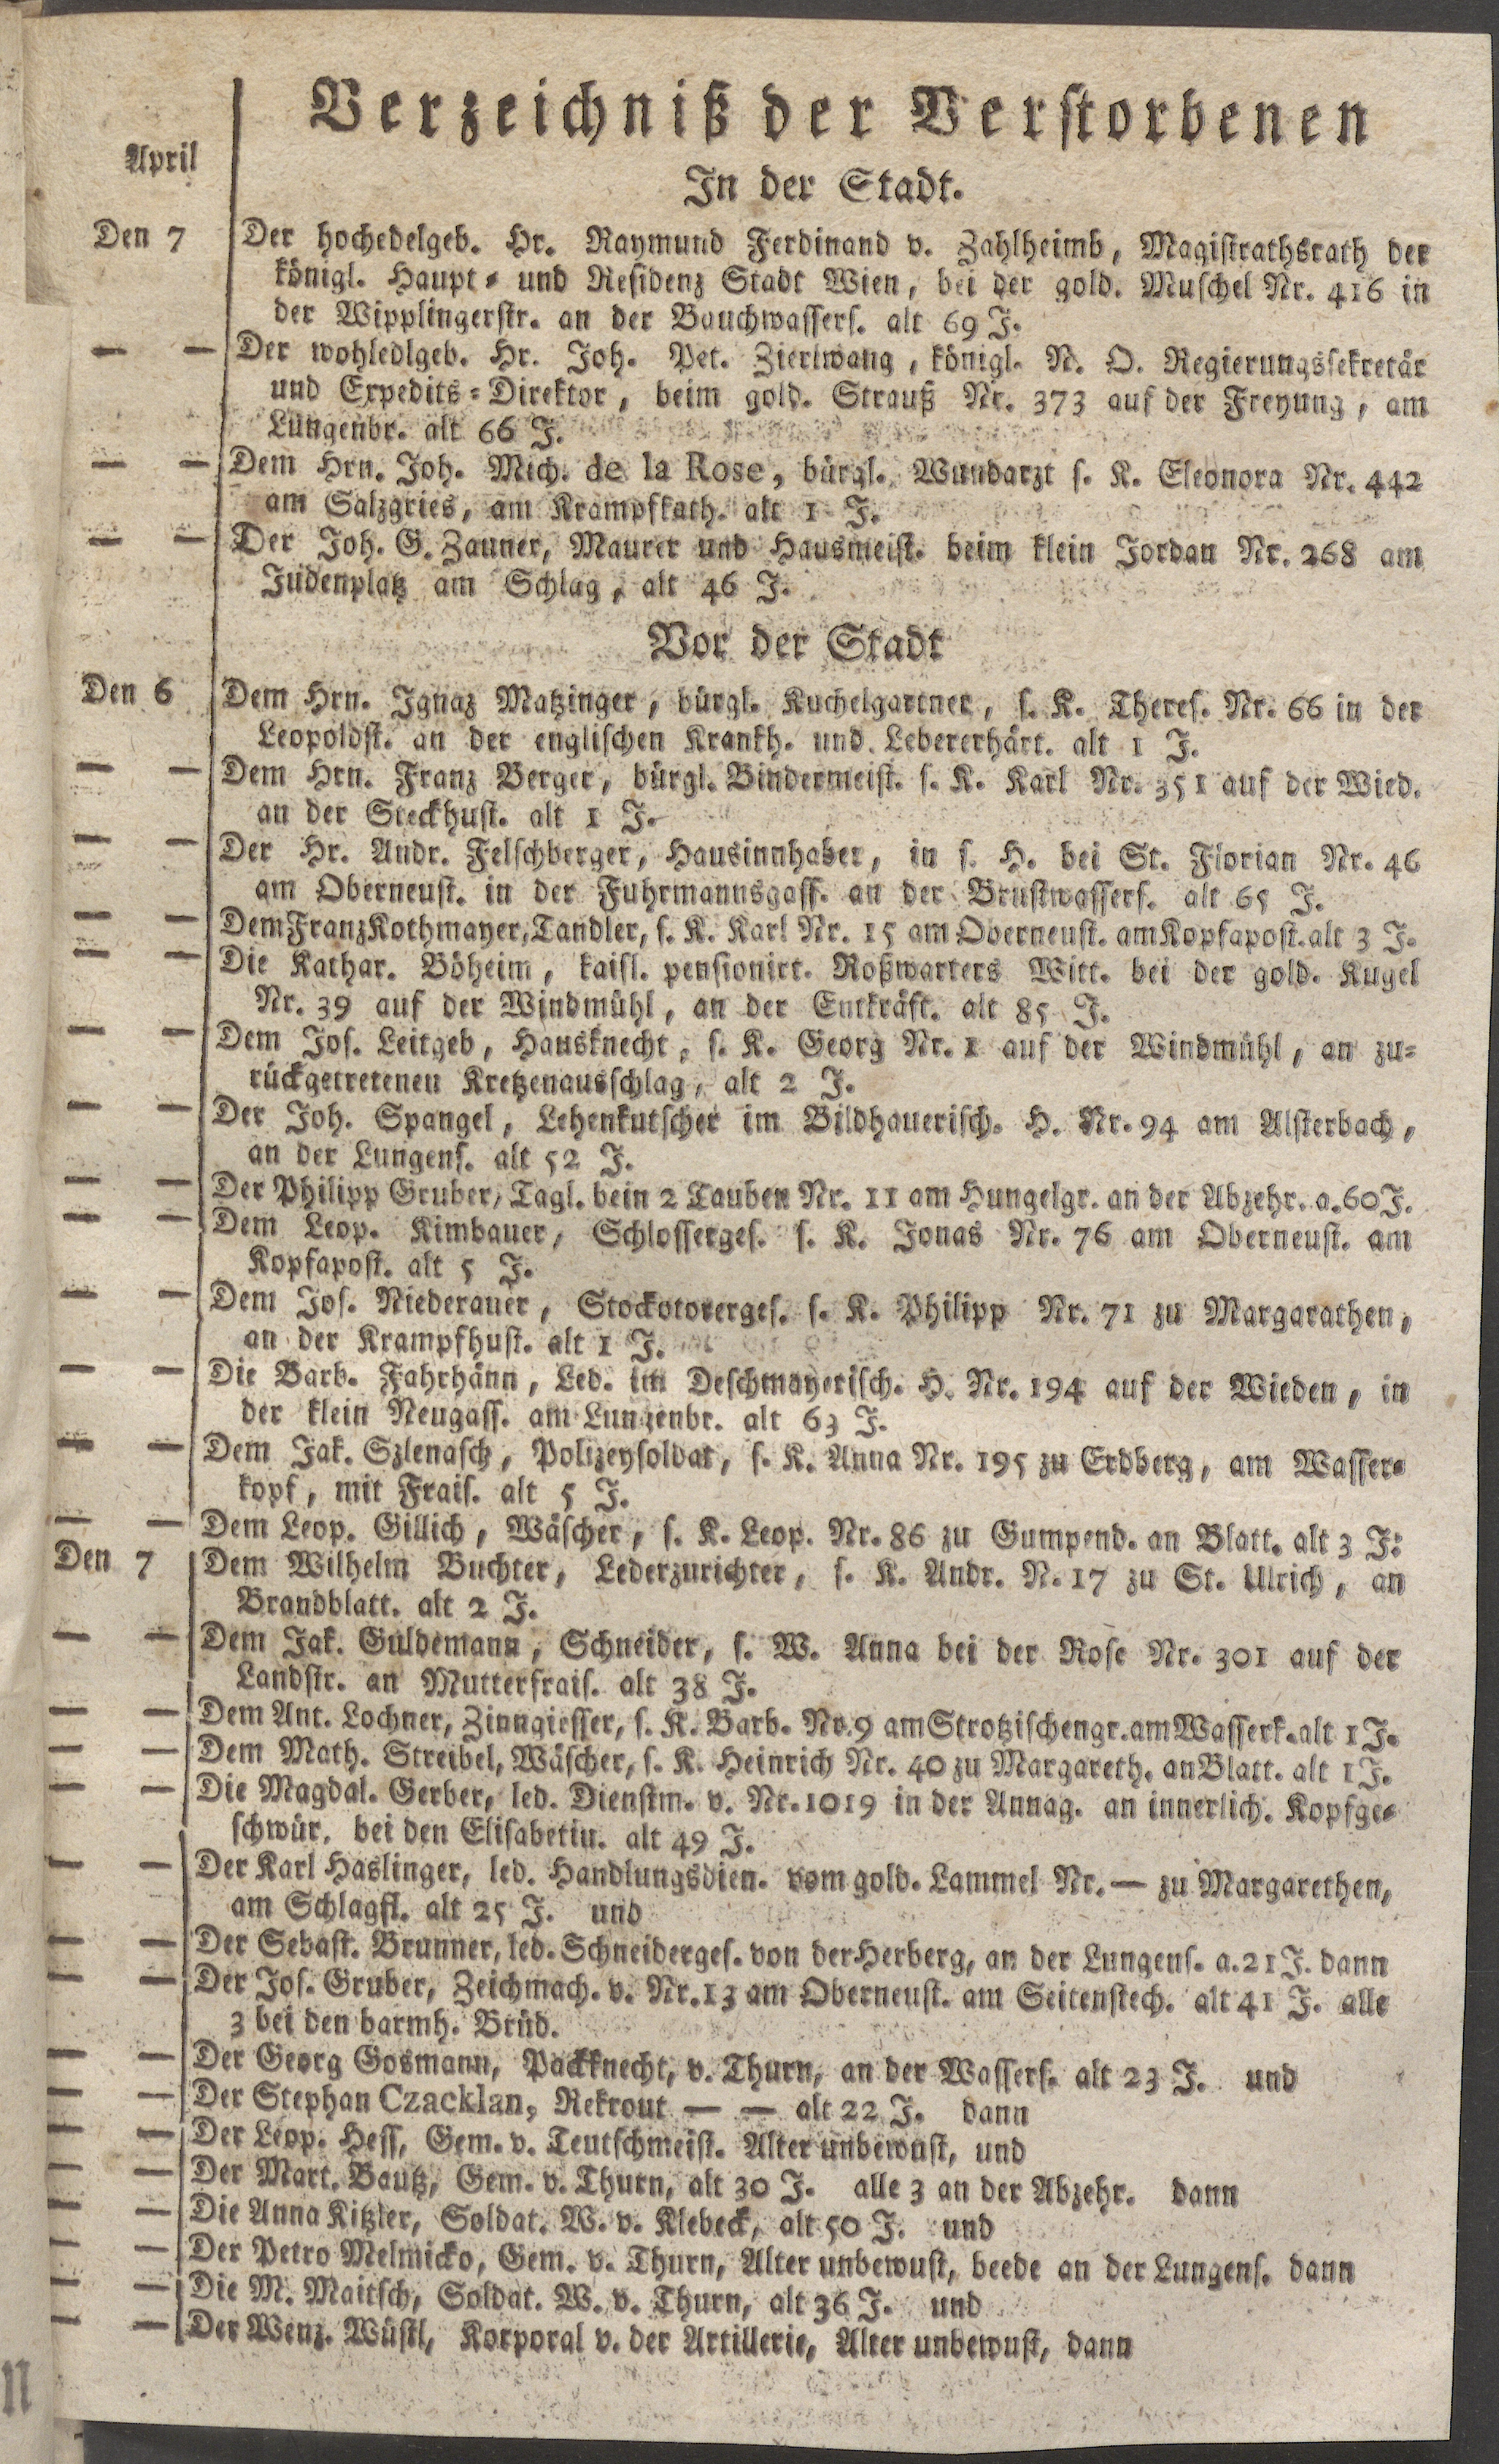 Verzeichniß der Verstorbenen
April
In der Stadt.
Den 7 Der hochedelgeb. Hr. Raymund Ferdinand v. Zahlheimb, Magistrathsrath der
königl. Haupt- und Residenz Stadt Wien, bei der gold. Muschel Nr. 416 in
der Wipplingerstr. an der Bauchwassers. alt 69 J.
— — Der wohledlgeb. Hr. Joh. Pet. Zierlwang, königl. N. O. Regierungssekretär
und Expedits-Direktor, beim gold. Strauß Nr. 373 auf der Freyung, am
Lungenbr. alt 66 J.
— — Dem Hrn. Joh. Mich. de la Rose, bürgl. Wundarzt s. K. Eleonora Nr. 442
am Salzgries, am Krampfkath. alt 1 J.
— — Der Joh. G. Zauner, Maurer und Hausmeist. beim klein Jordan Nr. 268 am
Judenplatz am Schlag, alt 46 J.
Vor der Stadt
Den 6 Dem Hrn. Ignaz Matzinger, bürgl. Kuchelgartner, s. K. Theres. Nr. 66 in der
Leopoldst. an der englischen Krankh. und Lebererhärt. alt 1 J.
— — Dem Hrn. Franz Berger, bürgl. Bindermeist. s. K. Karl Nr. 351 auf der Wied.
an der Steckhust. alt 1 J.
— — Der Hr. Andr. Felschberger, Hausinnhaber, in s. H. bei St. Florian Nr. 46
am Oberneust. in der Fuhrmannsgass. an der Brustwassers. alt 65 J.
— — Dem Franz Kothmayer, Tandler, s. K. Karl Nr. 15 am Oberneust. am Kopfapost. alt 3 J.
— — Die Kathar. Böheim, kaisl. pensionirt. Roßwarters Witt. bei der gold. Kugel
Nr. 39 auf der Windmühl, an der Entkräft. alt 85 J.
— — Dem Jos. Leitgeb, Hausknecht, s. K. Georg Nr. 1 auf der Windmühl, an zu-
rückgetretenen Kretzenausschlag, alt 2 J.
— — Der Joh. Spangel, Lehenkutscher im Bildhauerisch. H. Nr. 94 am Alsterbach,
an der Lungens. alt 52 J.
— — Der Philipp Gruber, Tagl. bein 2 Tauben Nr. 11 am Hungelgr. an der Abzehr. a. 60 J.
— — Dem Leop. Kimbauer, Schlosserges. s. K. Jonas Nr. 76 am Oberneust. am
Kopfapost. alt 5 J.
— — Dem Jos. Niederauer, Stockotorerges. s. K. Philipp Nr. 71 zu Margarathen,
an der Krampfhust. alt 1 J.
— — Die Barb. Fahrhänn, Led. im Deschmayerisch. H. Nr. 194 auf der Wieden, in
der klein Neugass. am Lungenbr. alt 63 J.
— — Dem Jak. Szlenasch, Polizeysoldat, s. K. Anna Nr. 195 zu Erdberg, am Wasser-
kopf, mit Frais. alt 5 J.
— — Dem Leop. Gillich, Wäscher, s. K. Leop. Nr. 86 zu Gumpend. an Blatt. alt 3 J:
Den 7 Dem Wilhelm Buchter, Lederzurichter, s. K. Andr. N. 17 zu St. Ulrich, an
Brandblatt. alt 2 J.
— — Dem Jak. Guldemann, Schneider, s. W. Anna bei der Rose Nr. 301 auf der
Landstr. an Mutterfrais. alt 38 J.
— — Dem Ant. Lochner, Zinngiesser, s. K. Barb. Nr. 9 am Strotzischengr. am Wasserk. alt 1 J.
— — Dem Math. Streibel, Wäscher, s. K. Heinrich Nr. 40 zu Margareth. an Blatt. alt 1 J.
— — Die Magdal. Gerber, led. Dienstm. v. Nr. 1019 in der Annag. an innerlich. Kopfge-
schwür, bei den Elisabetin. alt 49 J.
— — Der Karl Haslinger, led. Handlungsdien. vom gold. Lammel Nr. — zu Margarethen,
am Schlagfl. alt 25 J. und
— — Der Sebast. Brunner, led. Schneiderges. von der Herberg, an der Lungens. a. 21 J. dann
— — Der Jos. Gruber, Zeichmach. v. Nr. 13 am Oberneust. am Seitenstech. alt 41 J. alle
3 bei den barmh. Brüd.
— — Der Georg Gosmann, Packknecht, v. Thurn, an der Wassers. alt 23 J. und
— — Der Stephan Czacklan, Rekrout — — alt 22 J. dann
— — Der Leop. Hess, Gem. v. Teutschmeist. Alter unbewust, und
— — Der Mart. Bautz, Gem. v. Thurn, alt 30 J. alle 3 an der Abzehr. dann
— — Die Anna Kitzler, Soldat. W. v. Klebeck, alt 50 J. und
— — Der Petro Melmicko, Gem. v. Thurn, Alter unbewust, beede an der Lungens. dann
— — Die M. Maitsch, Soldat. W. v. Thurn, alt 36 J. und
— — Der Wenz. Wüstl, Korporal v. der Artillerie, Alter unbewust, dann
n